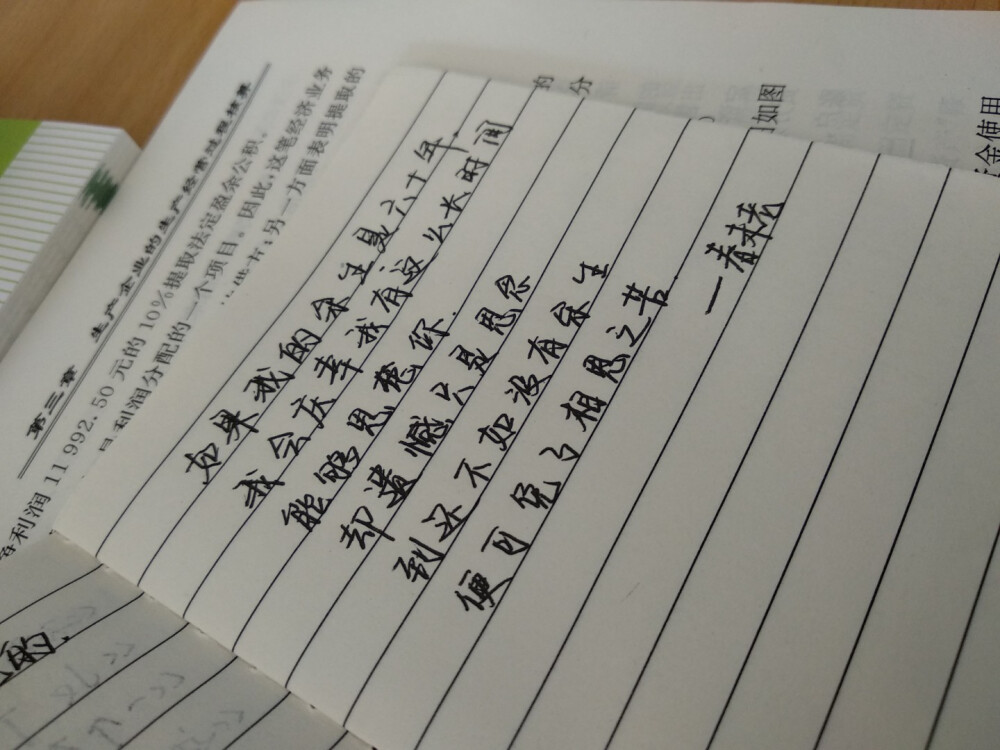 如果我的余生是六十年.
我会庆幸我有这么长时间
能够思恋你.
却遗憾只是思念
到还不如没有余生
便可免了相思之苦.
一春未老
第三章 生产企业的生产经营过程核算
利润 11 992.50 元的 10%提取法定盈余公积。
利润分配的一个项目。因此,这笔经济业务
另一方面表明提取的
的
分
如图
金使用
的.